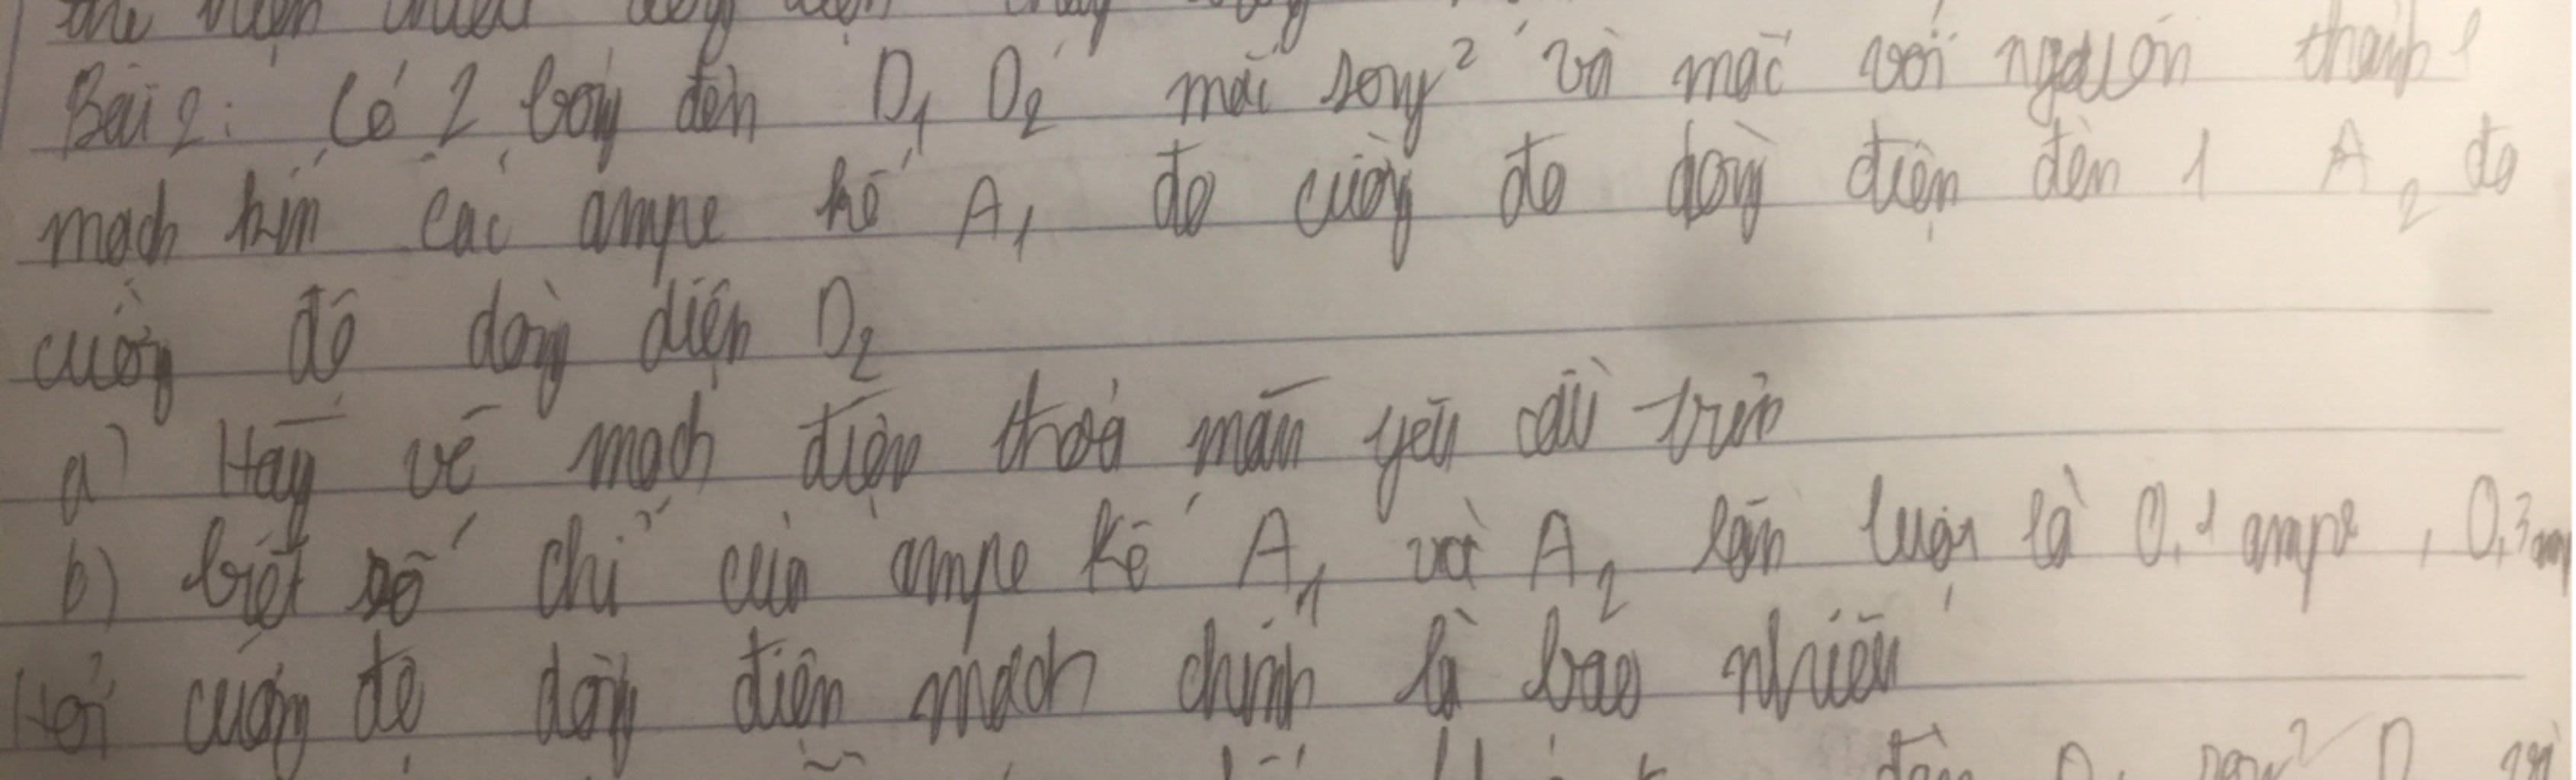 Bài 2: Có 2 bóng đèn D₁ D₂ mắc song² và mắc với nguồn thành 1
mạch kín các ampe kế A₁ đo cường độ dòng điện đèn 1 A₂ đo
cường độ dòng điện D₂
a) Hãy vẽ mạch điện thoả mãn yêu cầu trên
b) biết số chỉ của ampe kế A₁ và A₂ lần lượt là 0,1 ampe, 0,3 am
Hỏi cường độ dòng điện mạch chính là bao nhiêu